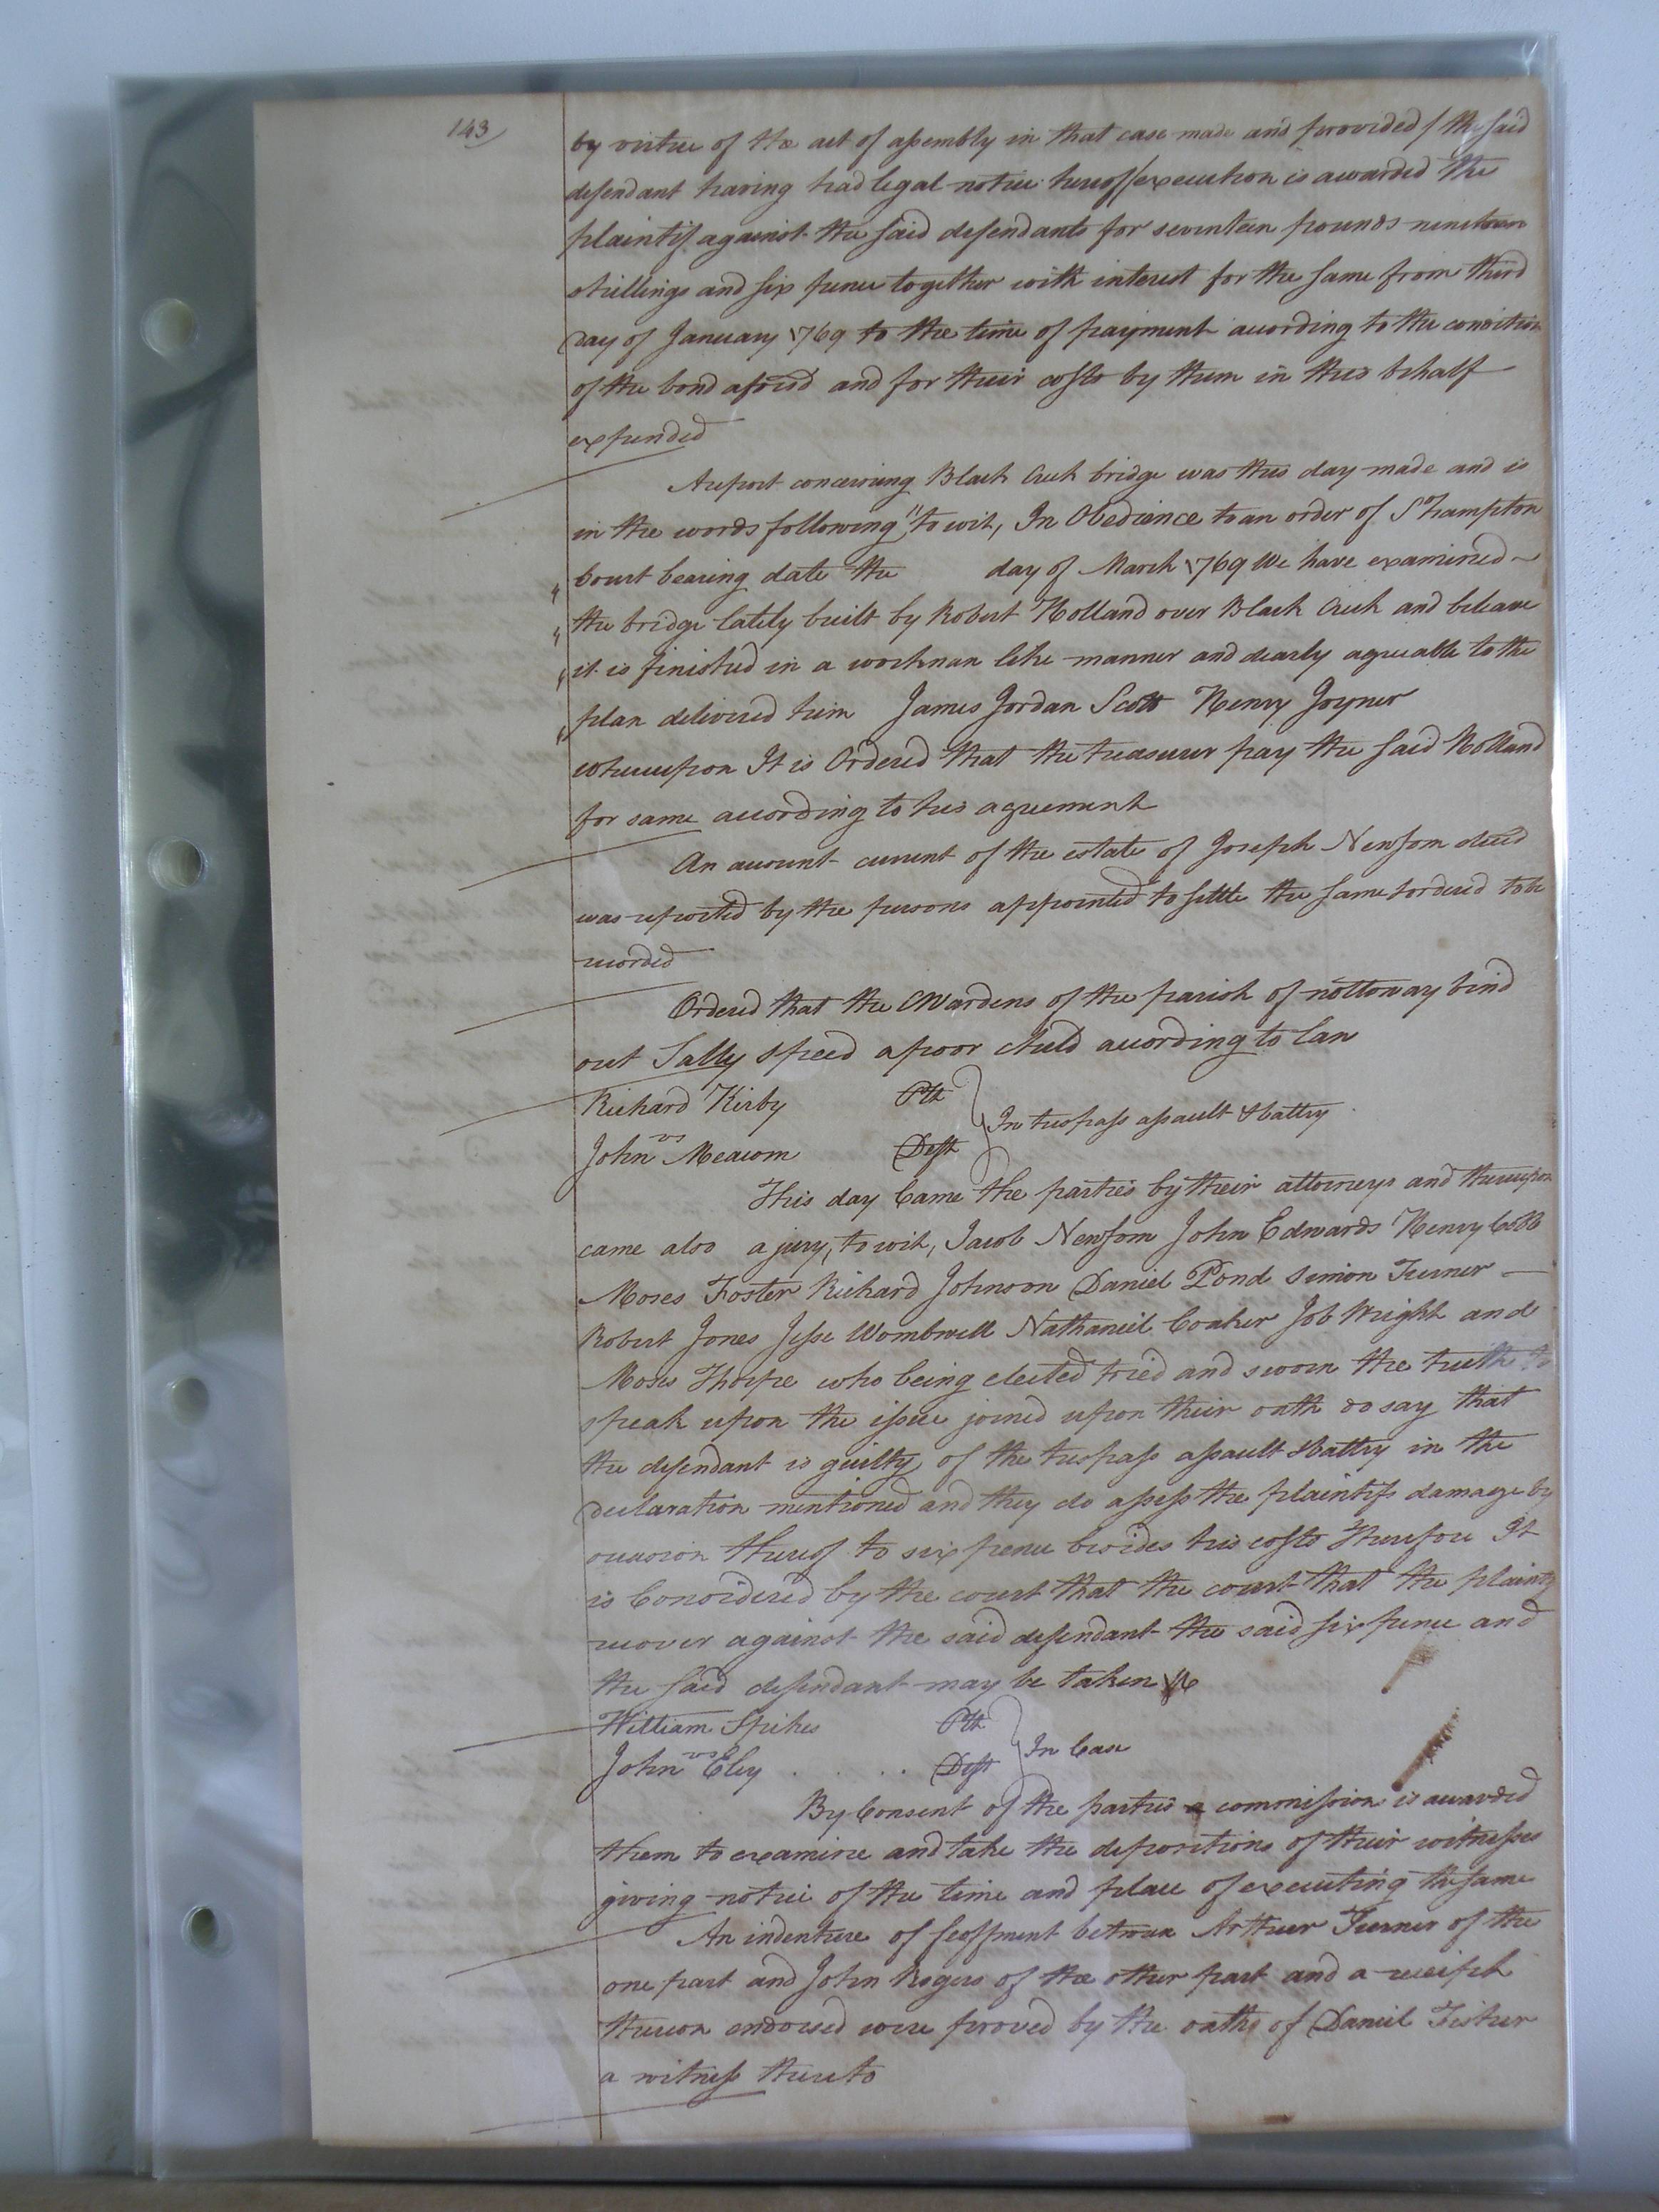 143
by virtue of the act of assembly in that case made and provided / the said
defendant having had legal notice hereof/execution is awarded the
plaintif against the said defendants for seventeen pounds nineteen
shillings and six pence together with interest for the same from third
day of January 1769 to the time of payment according to the condition
of the bond aforesd and for their costs by them in this behalf
expended
A report concerning Black Creek bridge was this day made and is
in the words following "to wit, In Obedience to an order of S'hampton
" Court bearing date the day of March 1769 We have examined
" the bridge lately built by Robert Holland over Black Creek and beleave
" it is finished in a workman like manner and nearly agreable to the
" plan delivered him James Jordan Scott Henry Joyner
whereupon It is Ordered that the treasurer pay the said Holland
for same according to his agreement
An account current of the estate of Joseph Newsom deced
was reported by the persons appointed to settle the same & ordered to be
recorded
Ordered that the CWardens of the parish of nottoway bind
out Sally Speed a poor child according to law
Richard Kirby Plt
vs In trespass assault & battry
John Meacom Deft
This day Came the parties by their attorneys and thereupon
came also a jury, to wit, Jacob Newsom John Edwards Henry Cobb
Moses Foster Richard Johnson Daniel Pond Simon Turner
Robert Jones Jesse Wombwell Nathaniel Coaker Job Wright and
Moses Thorpe who being elected tried and sworn the truth to
speak upon the issue joined upon their oath do say that
the defendant is guilty of the trespass assault & battry in the
declaration mentioned and they do assess the plaintifs damage by
occasion thereof to six pence besides his costs Therefore It
is Considered by the court that the court that the plaintif
recover against the said defendant the said six pence and
the said defendant may be taken &c
William Spikes Plt
vs In Case
John Eley . . . . Deft
By Consent of the parties a commission is awarded
them to examine and take the depositions of their witnesses
giving notice of the time and place of executing the same
An indenture of feoffment between Arthur Turner of the
one part and John Rogers of the other part and a receipt
thereon endorsed were proved by the oaths of Daniel Fisher
a witness thereto